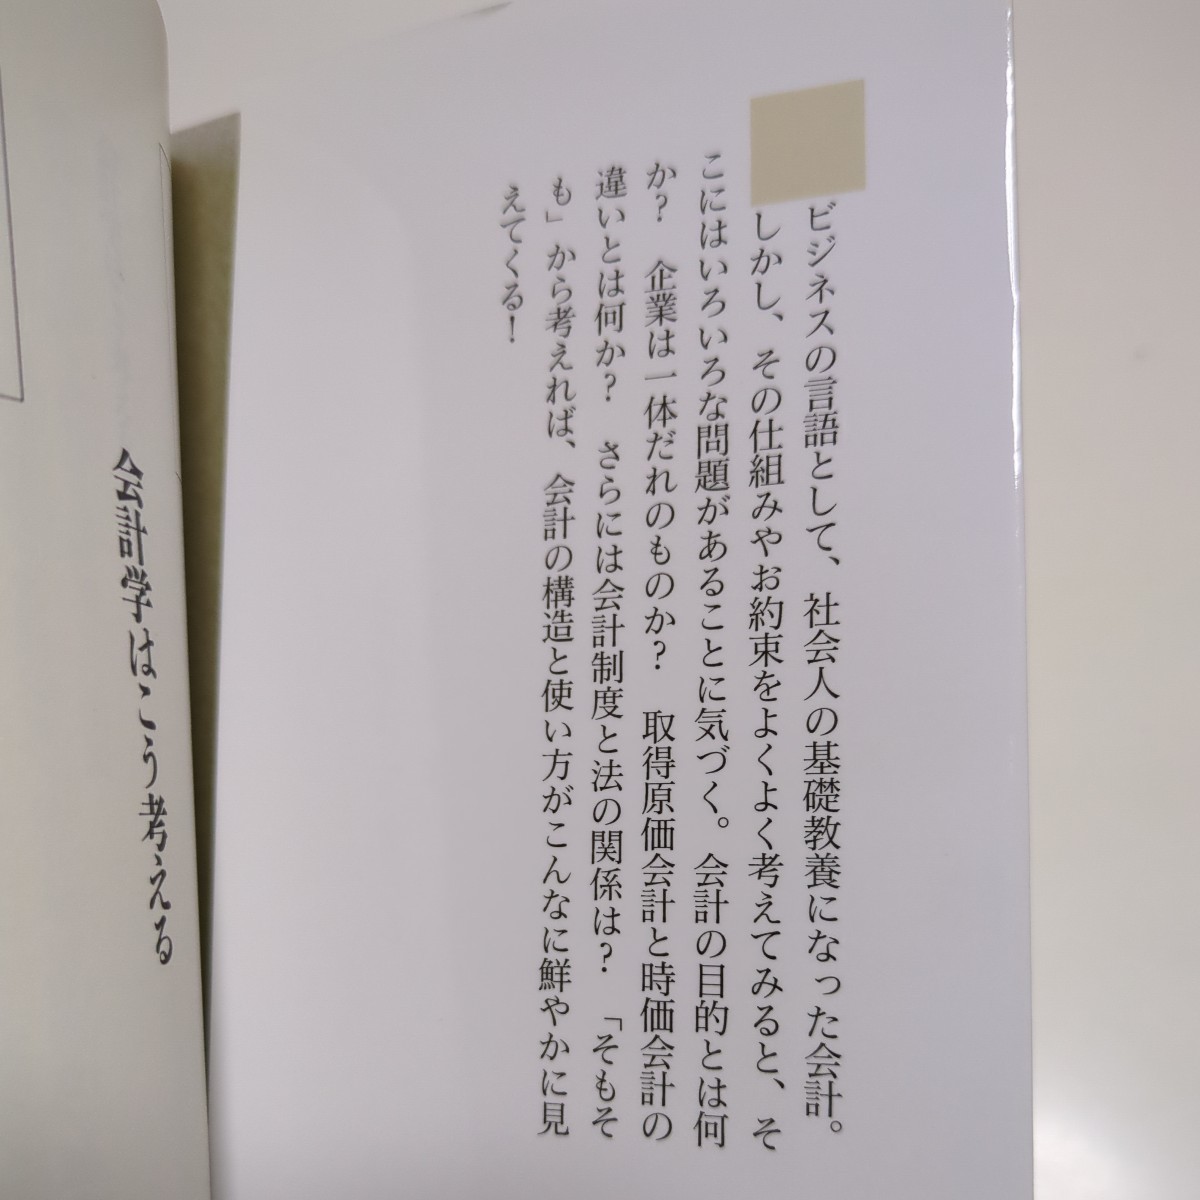 ビジネスの言語として、社会人の基礎教養になった会計。
しかし、その仕組みやお約束をよくよく考えてみると、そ
こにはいろいろな問題があることに気づく。会計の目的とは何
か？　企業は一体だれのものか？　取得原価会計と時価会計の
違いとは何か？　さらには会計制度と法の関係は？　「そもそ
も」から考えれば、会計の構造と使い方がこんなに鮮やかに見
えてくる！
会計学はこう考える